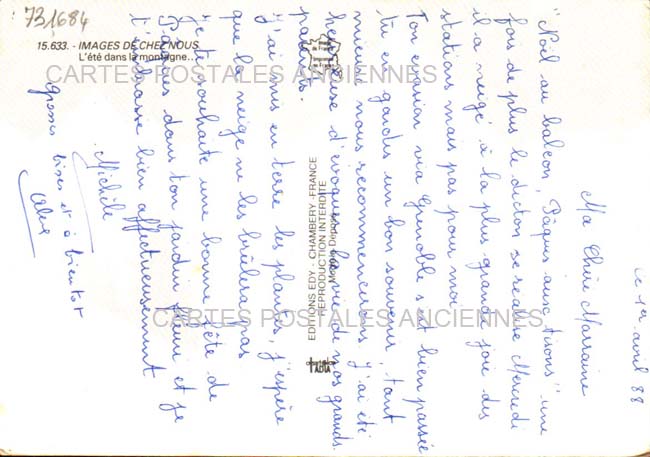 731684
15.633. - IMAGES DE CHEZ NOUS
L'été dans la montagne...
Images de France
Imprimé en France
EDITIONS EDY - CHAMBERY - FRANCE
REPRODUCTION INTERDITE
CARTES POSTALES ANCIENNES
CARTES POSTALES ANCIENNES
Le 1er avril 88
Ma Chère Marraine
"Noël au balcon, Pâques aux tisons" une
fois de plus le dicton se réalise Mercredi
il a neigé à la plus grande joie des
stations mais pas pour moi.
Ton évasion via Grenoble s'est bien passée
tu en gardes un bon souvenir, tant
mieux nous recommencerons. J'ai été
heureuse d'évoquer la vie de nos grands
parents.
J'ai mis en terre les plantes, j'espère
que la neige ne les brûlera pas
Je te souhaite une bonne fête de
Pâques dans ton jardin fleuri et je
t'embrasse bien affectueusement
Michèle
Grosses bises et à bientôt